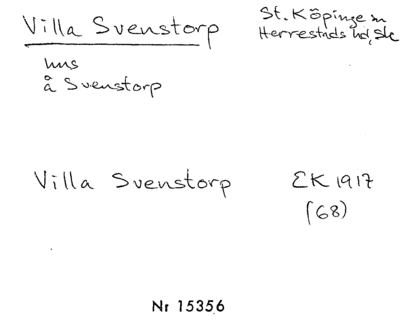 Villa Svenstorp
St. Köpinge sn
Herrestads hd, Sk
hus
å Svenstorp
Villa Svenstorp EK 1917
(68)
Nr 15356